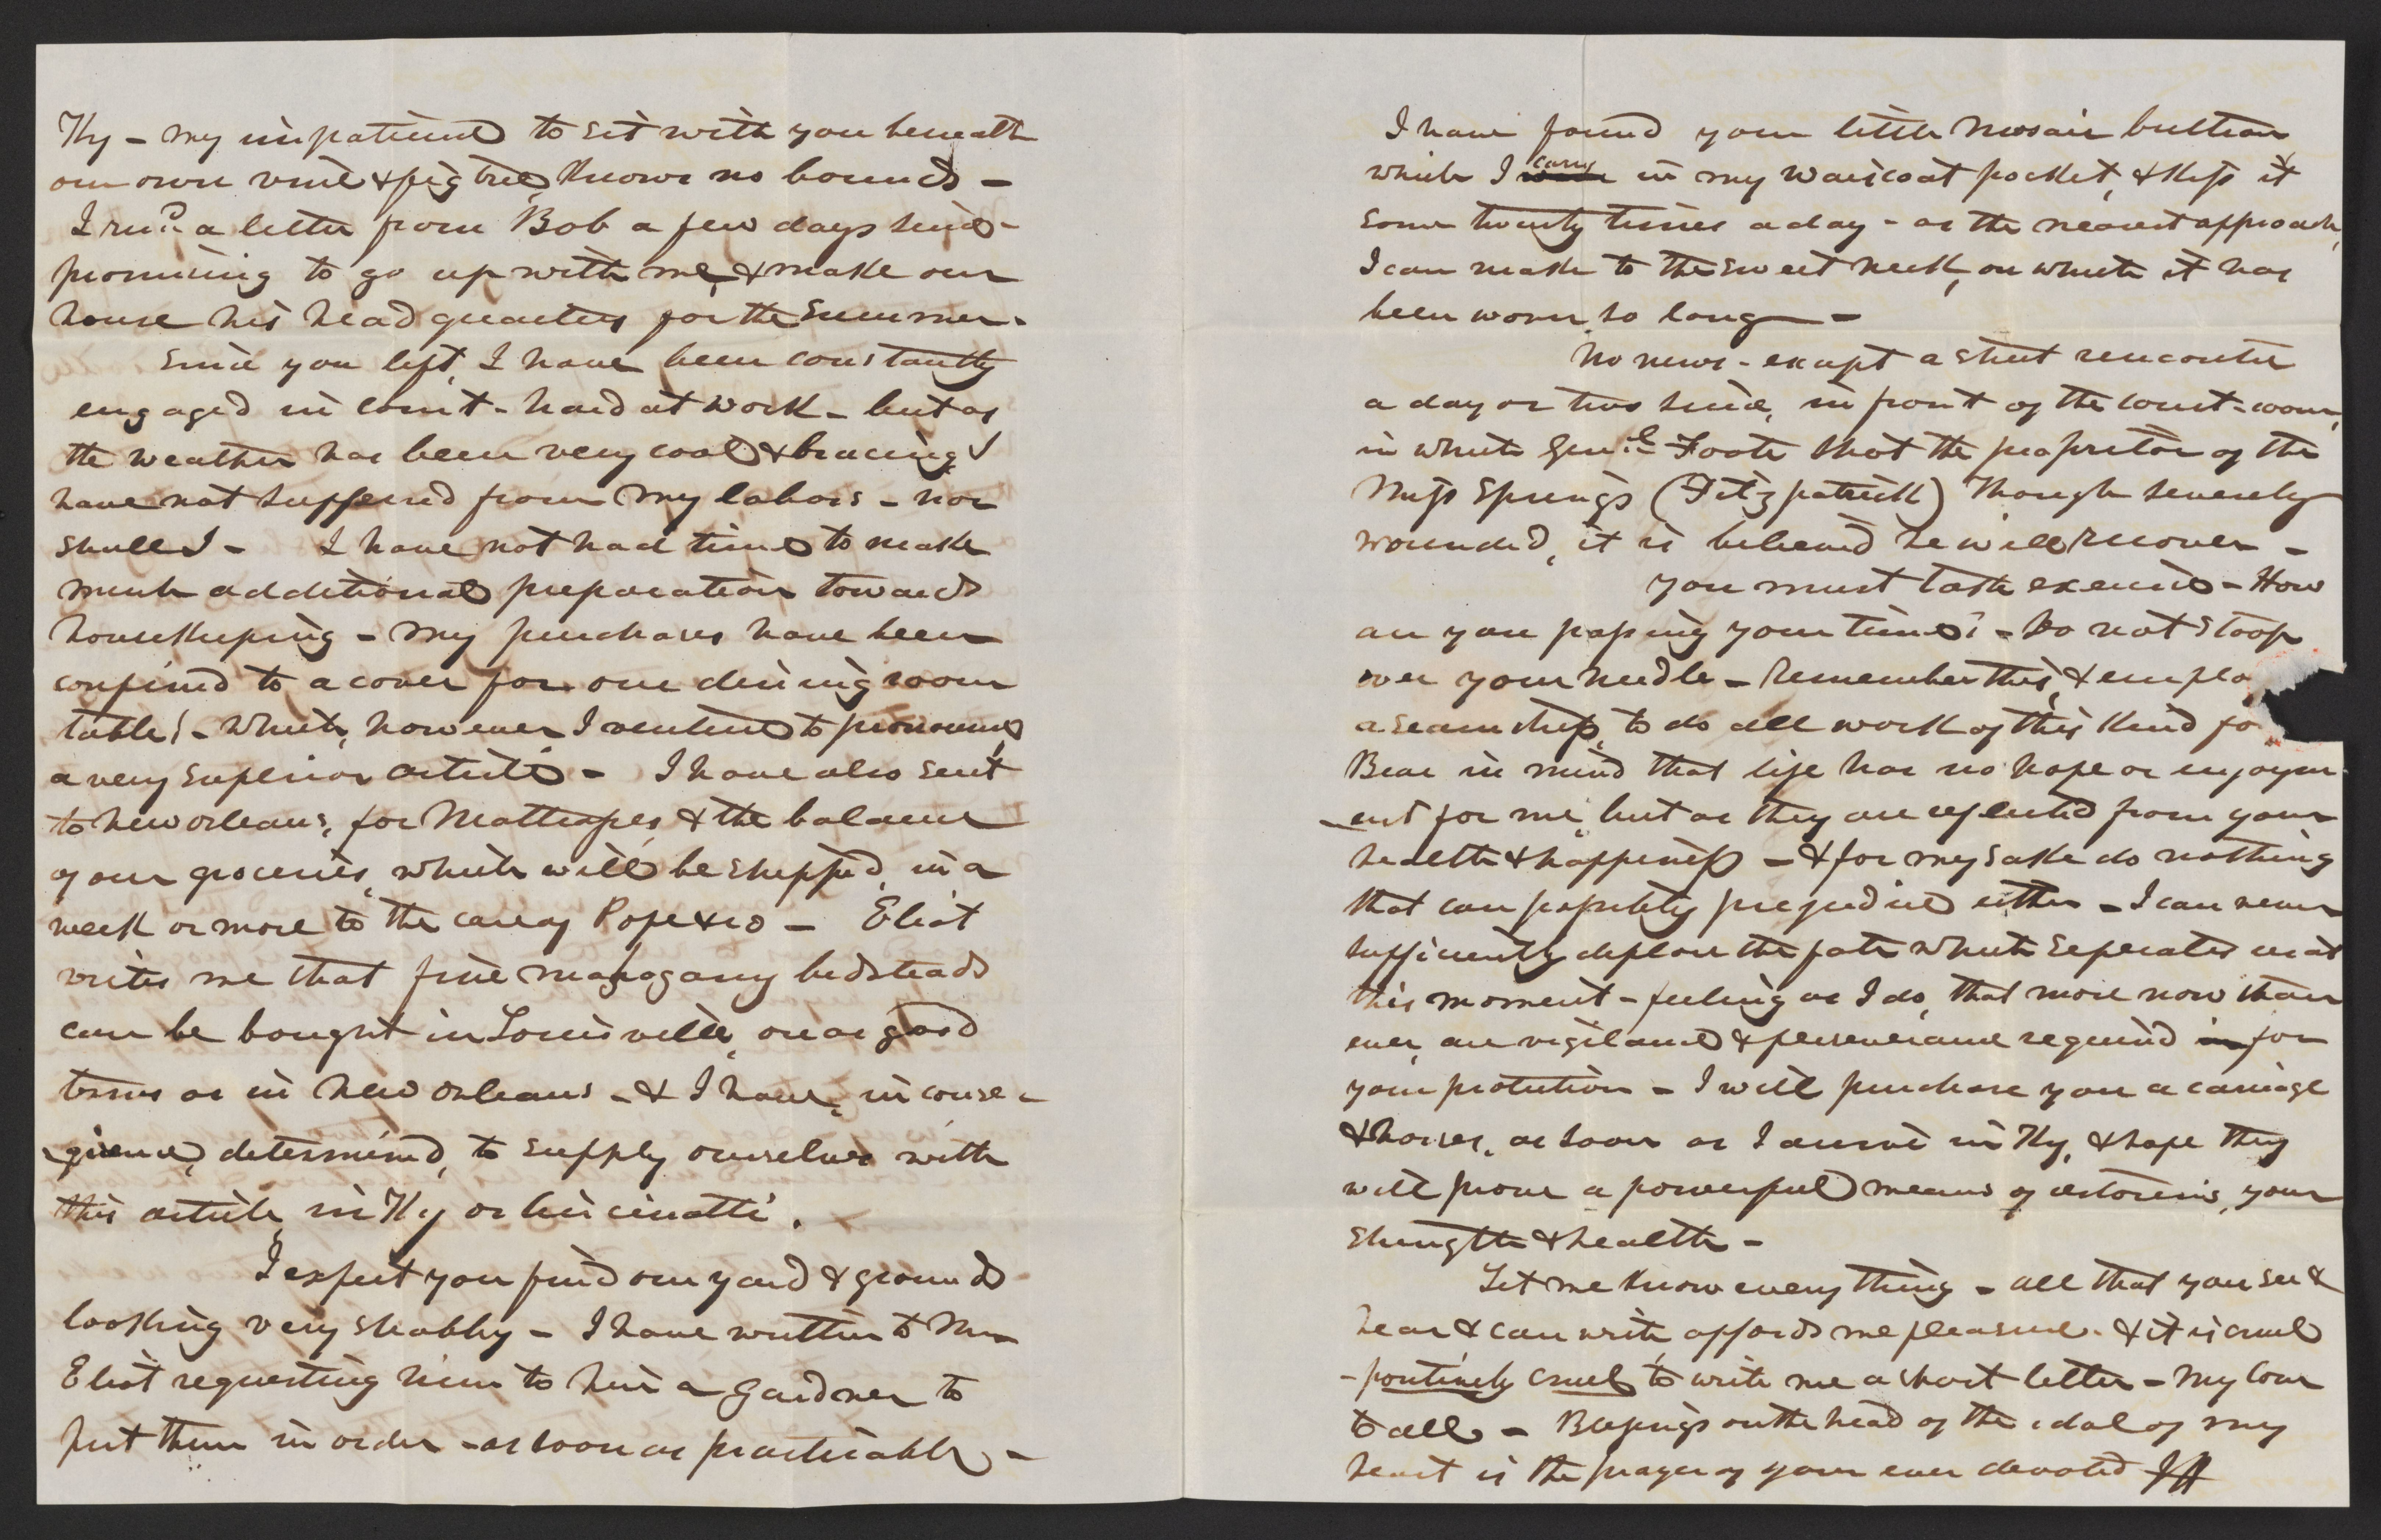 Ky - my impatience to sit with you beneath
our own vine & fig tree, knows no bounds -
I recd. a letter from Bob a few days since -
promising to go up with me, & make our
house his head quarters for the Summer.
Since you left, I have been constantly
engaged in Court - hard at work - but as
the weather has been very cool & bracing I
have not suffered from my labors - nor
shall I - I have not had time to make
much additional preparation towards
housekeeping - my purchases have been
confined to a cover for our dining room
table! - Which, however I venture to pronounce
a very superior article - I have also sent
to New Orleans, for Mattrasses, & the balance
of our groceries, which will be shipped, in a
week or more to the care of Pope & co - Eliot
writes me that fine mahogany bedsteads
can be bought in Louisville, on as good
terms as in New Orleans - & I have, in conse-
-quence, determined, to supply ourselves with
this article, in Ky or Cincinatti.
I expect you find our yard & grounds
looking very shabby - I have written to Mr
Eliot requesting him to hire a gardner to
put them in order - as soon as practicable -
I have found your little Mosaic button
which I carry in my waiscoat pocket, & kiss it
some twenty times a day - as the nearest approach,
I can make to the sweet neck, on which it has
been worn so long -
No news - except a street rencontre
a day or two since, in front of the court-room,
in which Genl. Foote shot the proprietor of the
Miss Springs (Fitzpatrick) Though severely
wounded, it is believed he will recover -
You must take exercise - How
are you passing your time? - Do not stoop
over your needle - Remember this, & emplo
a seamstress, to do all work of this kind fo
Bear in mind that life has no hope or enjoym-
-ent for me, but as they are reflected from your
health & happiness - & for my sake do nothing
that can possibly prejudice either - I can never
sufficiently deplore the fate which seperates us at
this moment - feeling as I do, that more now than
ever, are vigilance & perseverance required in for
your protection - I will purchase you a carriage
& horses, as soon as I arrive in Ky, & hope they
will prove a powerful means of restoring, your
strength & health -
Let me know every thing - all that you see &
hear & can write, affords me pleasure. & it is cruel
- positively cruel, to write me a short letter - My love
to all - Blessings on the head of the idol of my
heart is the prayer of your ever devoted